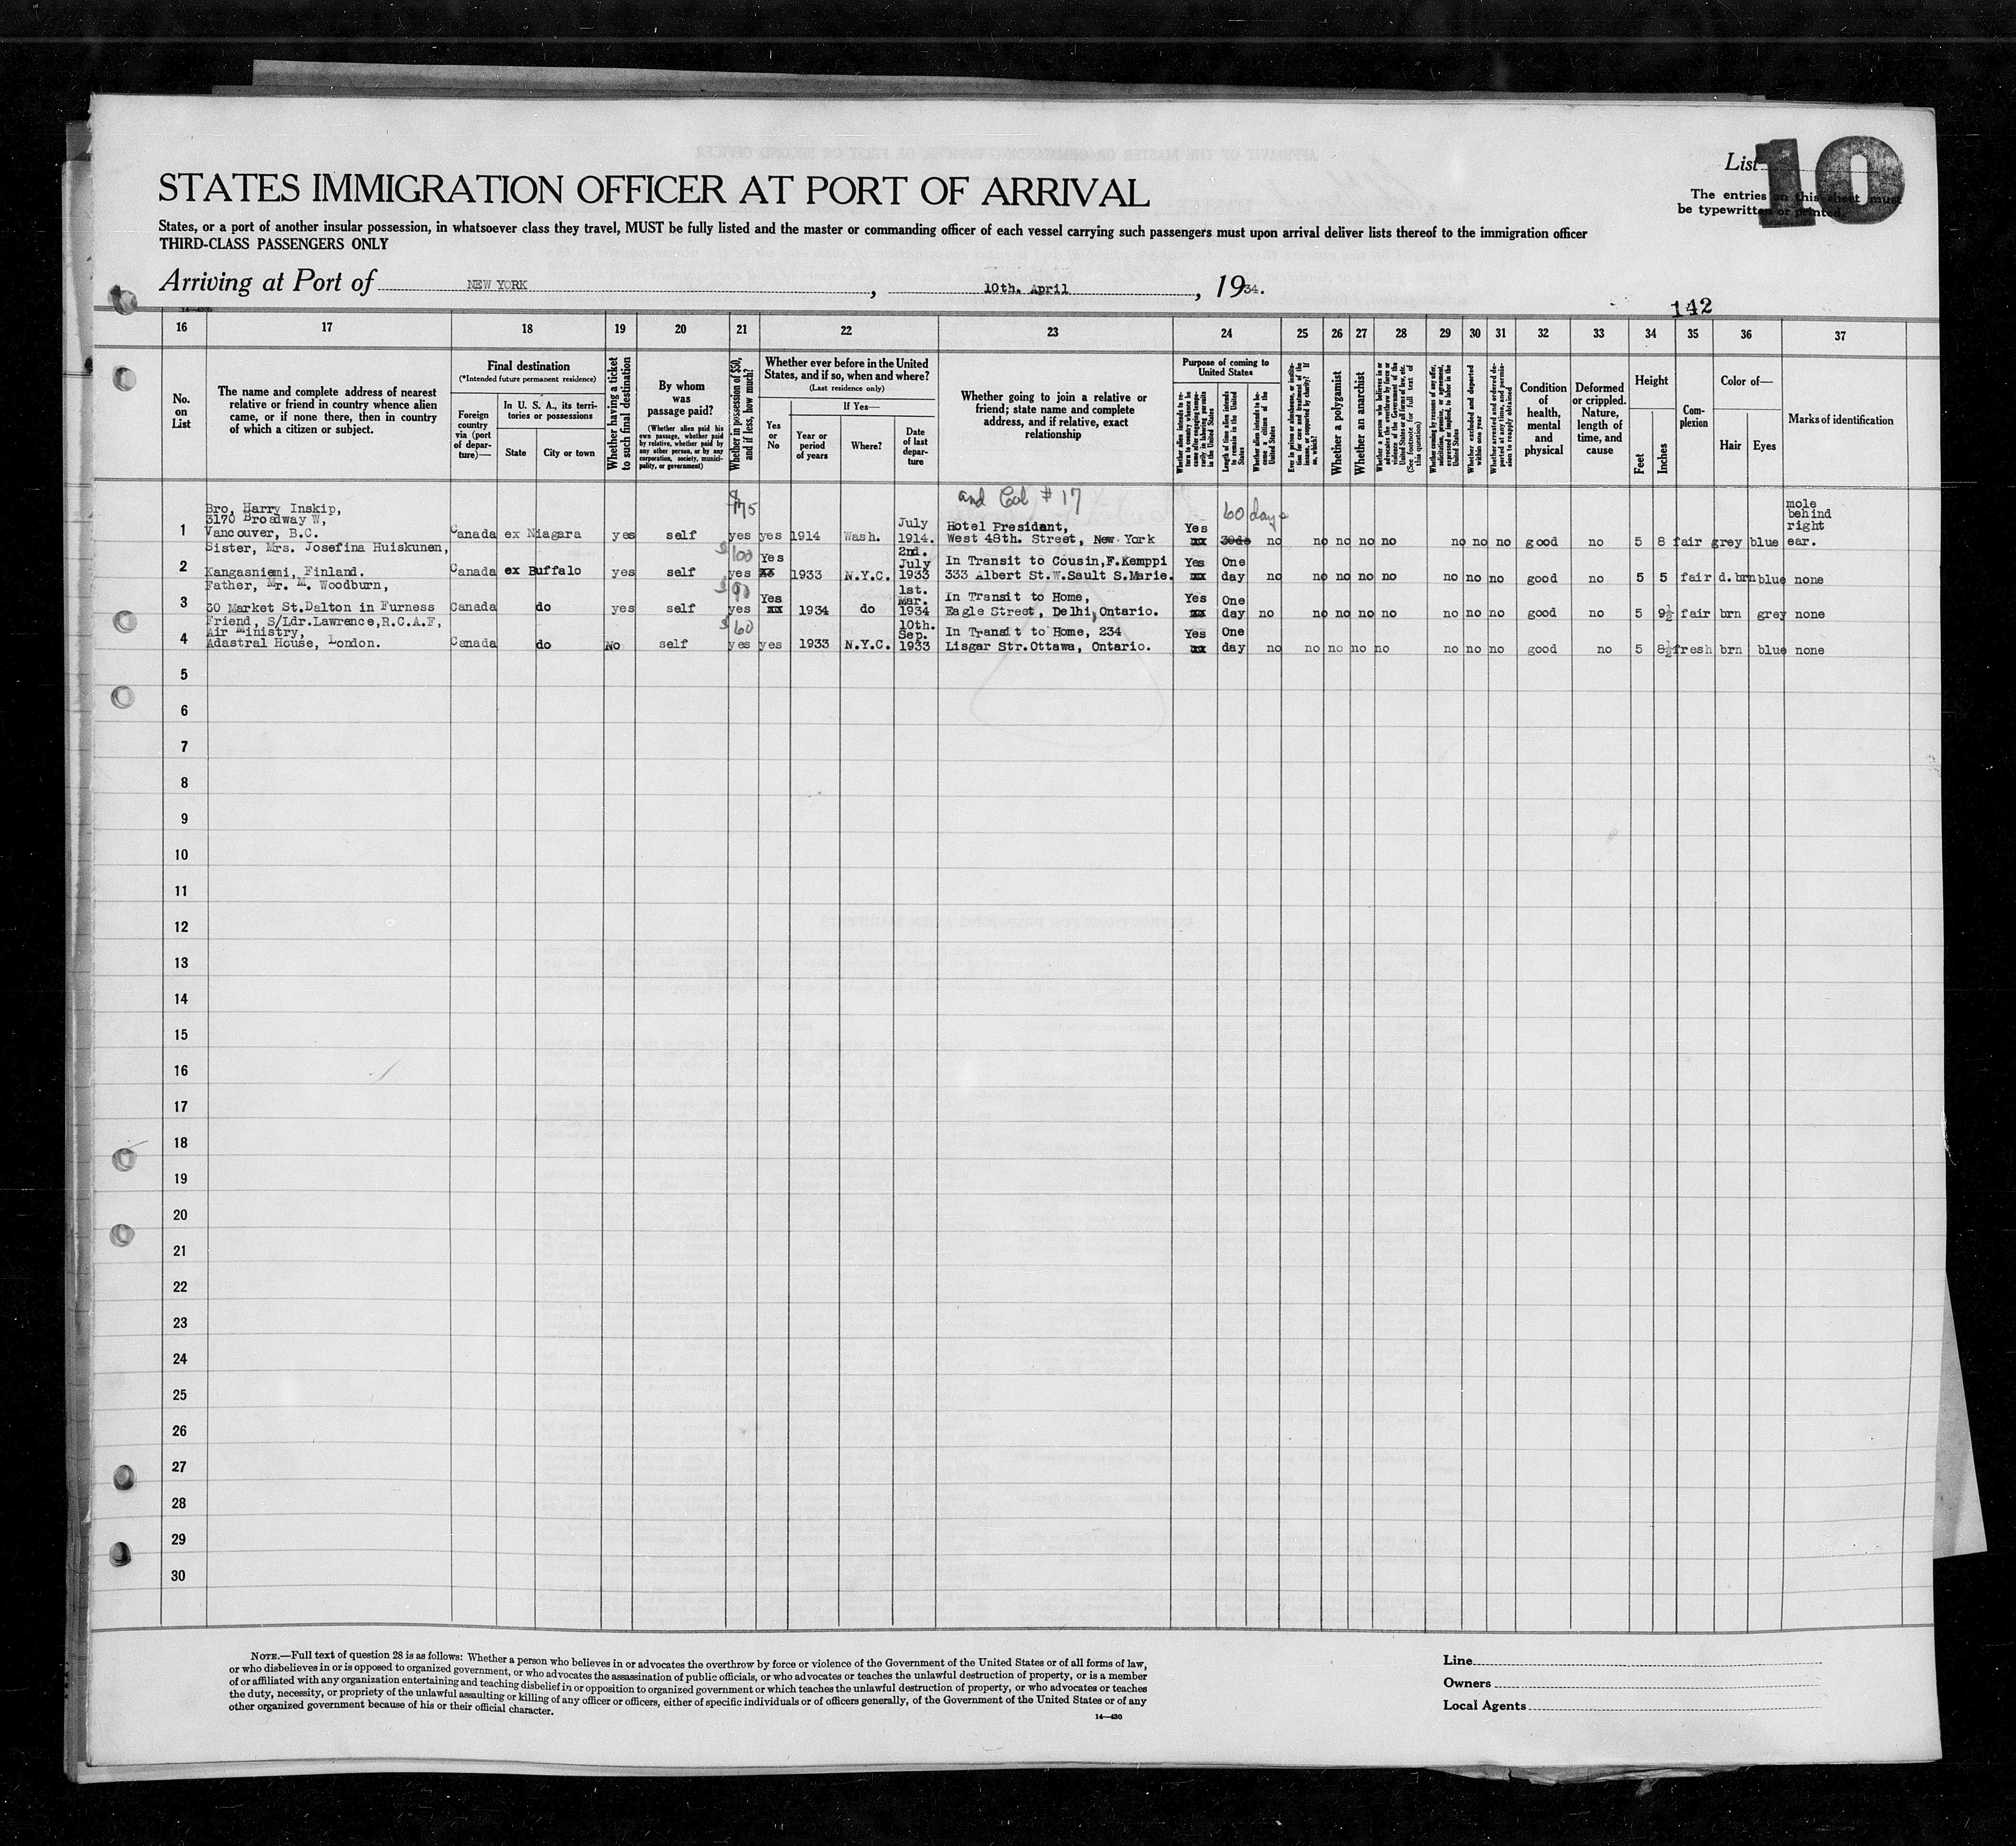 List 10
STATES IMMIGRATION OFFICER AT PORT OF ARRIVAL
The entries on this sheet must
be typewritten or printed
States, or a port of another insular possession, in whatsoever class they travel, MUST be fully listed and the master or commanding officer of each vessel carrying such passengers must upon arrival deliver lists thereof to the immigration officer
THIRD-CLASS PASSENGERS ONLY
Arriving at Port of NEW YORK, 10th. April, 1934.
142
16 17 18 19 20 21 22 23 24 25 26 27 28 29 30 31 32 33 34 35 36 37
No. on List
The name and complete address of nearest
relative or friend in country whence alien
came, or if none there, then in country
of which a citizen or subject.
Final destination
(*Intended future permanent residence)
Foreign country via (port of departure)—
In U. S. A., its territories or possessions
State
City or town
Whether having a ticket to such final destination
By whom was passage paid?
(Whether alien paid his own passage, whether paid by relative, whether paid by any other person, or by any corporation, society, municipality, or government)
Whether in possession of $50, and if less, how much?
Whether ever before in the United States, and if so, when and where?
(Last residence only)
Yes or No
If Yes—
Year or period of years
Where?
Date of last departure
Whether going to join a relative or friend; state name and complete address, and if relative, exact relationship
Purpose of coming to United States
Length of time alien intends to remain in the United States
Whether alien intends to become a citizen of the United States
Whether a polygamist
Whether an anarchist
Whether excluded and deported within one year
Condition of health, mental and physical
Deformed or crippled. Nature, length of time, and cause
Height
Feet
Inches
Complexion
Color of—
Hair
Eyes
Marks of identification
$175
and Col # 17
60 days
1 Bro, Harry Inskip, 3170 Broadway W, Vancouver, B.C. Canada ex Niagara yes self yes yes 1914 Wash. July 1914. Hotel President, West 48th. Street, New York Yes xx 30ds no no no no no no no no good no 5 8 fair grey blue mole behind right ear.
2 Sister, Mrs. Josefina Huiskunen, Kangasniemi, Finland. Canada ex Buffalo yes self $100 yes Yes 1933 N.Y.C. 2nd. July 1933 In Transit to Cousin,F.Kemppi 333 Albert St.W.Sault S.Marie. Yes xx One day no no no no no no no no good no 5 5 fair d.brn blue none
3 Father, Mr. M. Woodburn, 60 Market St.Dalton in Furness Canada do yes self $90 yes Yes xx 1934 do 1st. Mar. 1934 In Transit to Home, Eagle Street, Delhi, Ontario. Yes xx One day no no no no no no no no good no 5 9½ fair brn grey none
4 Friend, S/Ldr.Lawrence,R.C.A.F, Air Ministry, Adastral House, London. Canada do No self $60 yes yes 1933 N.Y.C. 10th. Sep. 1933 In Transit to Home, 234 Lisgar Str.Ottawa, Ontario. Yes xx One day no no no no no no no no good no 5 8½ fresh brn blue none
5
6
7
8
9
10
11
12
13
14
15
16
17
18
19
20
21
22
23
24
25
26
27
28
29
30
NOTE.—Full text of question 28 is as follows: Whether a person who believes in or advocates the overthrow by force or violence of the Government of the United States or of all forms of law,
or who disbelieves in or is opposed to organized government, or who advocates the assassination of public officials, or who advocates or teaches the unlawful destruction of property, or is a member
of or affiliated with any organization entertaining and teaching disbelief in or opposition to organized government or which teaches the unlawful destruction of property, or who advocates or teaches
the duty, necessity, or propriety of the unlawful assaulting or killing of any officer or officers, either of specific individuals or of officers generally, of the Government of the United States or of any
other organized government because of his or their official character.
14—430
Line
Owners
Local Agents